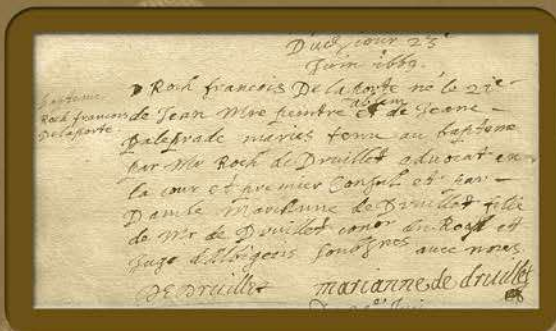 Dudj jour 23e
Juin 1669.
Bapteme
Roch francois
Delaporte.
Roch francois Delaporte né le 21e
de Jean Mre peintre et de Jeane
Daleprade mariés tenu au bapteme
par Mr Roch de Druillet advocat en
la cour et premier Consul et par
Damle Marianne de Druillet fille
de Mr de Druillet du Roy et
Juge dAlbigeois avec nous
De Druillet marianne de druillet